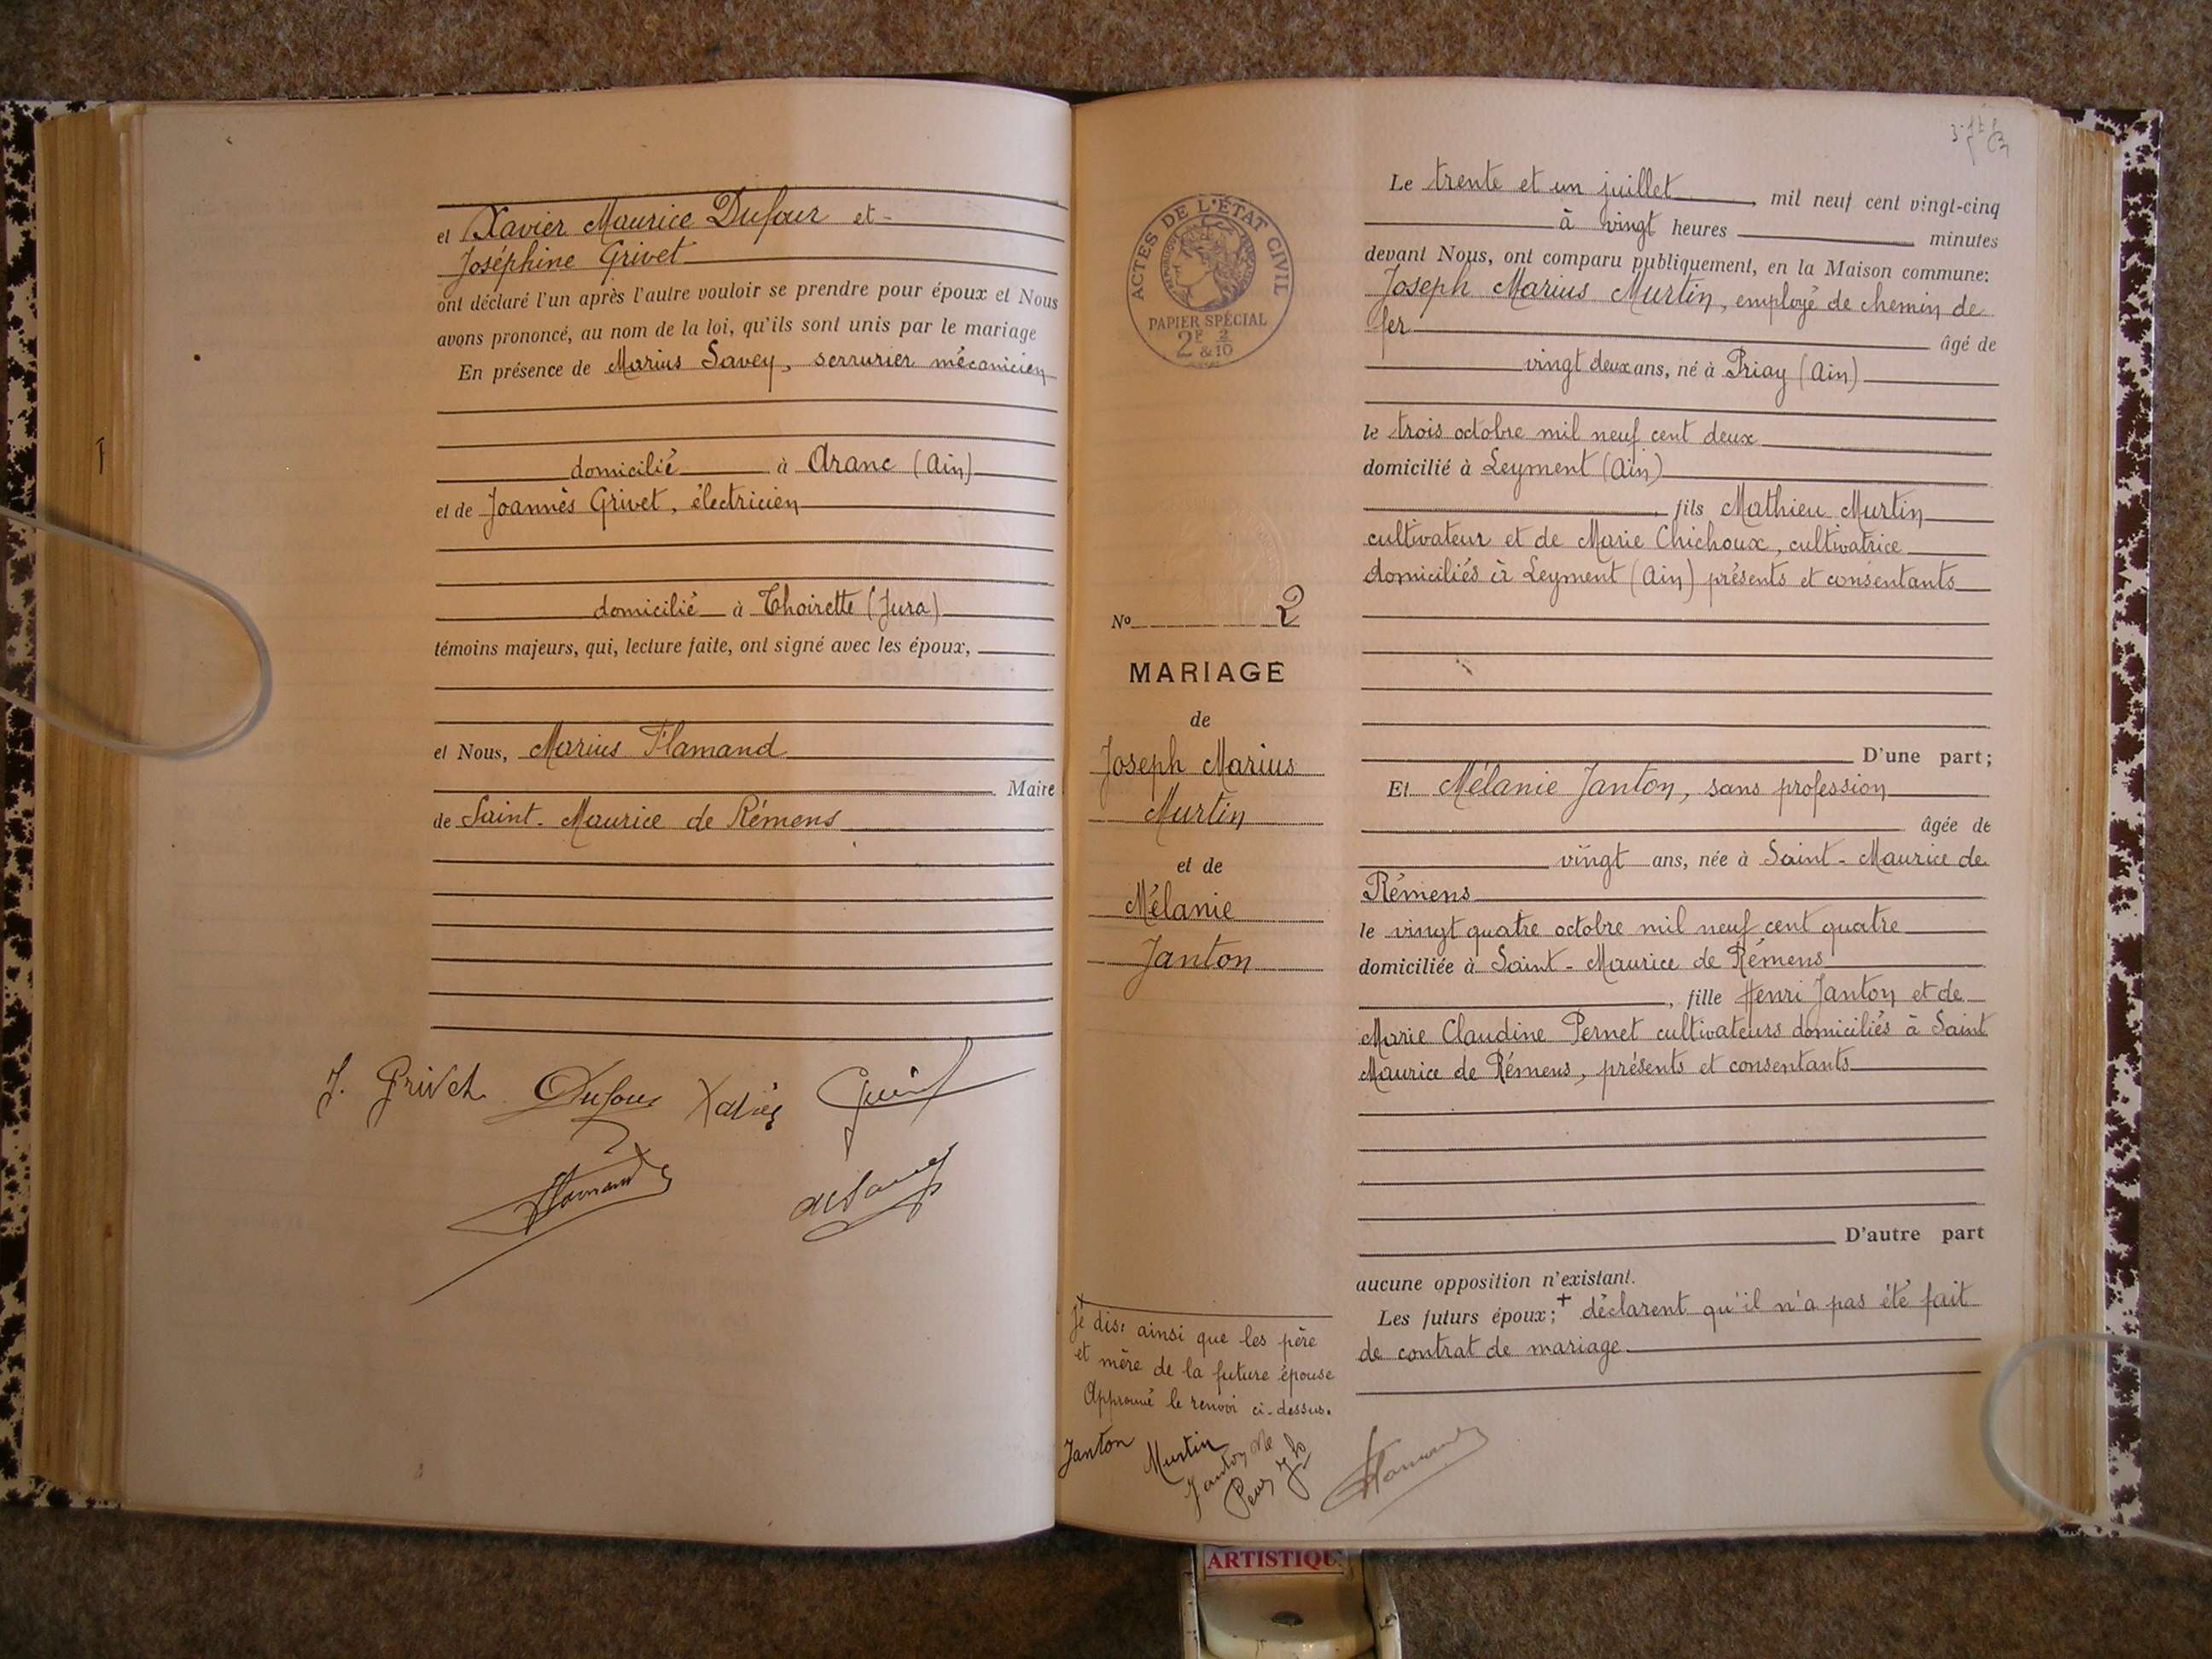 et Xavier Maurice Dufour et
Joséphine Grivet
ont déclaré l'un après l'autre vouloir se prendre pour époux et Nous
avons prononcé, au nom de la loi, qu'ils sont unis par le mariage
En présence de Marius Savey, serrurier mécanicien
domicilié à Aranc (Ain)
et de Joannès Grivet, électricien
domicilié à Thoirette (Jura)
témoins majeurs, qui, lecture faite, ont signé avec les époux,
et Nous, Marius Flamand
Maire
de Saint-Maurice de Rémens
J. Grivet Dufour Xavier
Flamand
ACTES DE L'ÉTAT CIVIL
PAPIER SPÉCIAL
2F 2
& 10
No 2
MARIAGE
de
Joseph Marius
Murtin
et de
Mélanie
Janton
Je dis: ainsi que les père
et mère de la future épouse
Approuvé le renvoi ci-dessus.
Janton Murtin
Janton
Flamand
Le trente et un juillet mil neuf cent vingt-cinq
à vingt heures minutes
devant Nous, ont comparu publiquement, en la Maison commune:
Joseph Marius Murtin, employé de chemin de
fer âgé de
vingt deux ans, né à Priay (Ain)
le trois octobre mil neuf cent deux
domicilié à Leyment (Ain)
, fils Mathieu Murtin
cultivateur et de Marie Chichoux, cultivatrice
domiciliés à Leyment (Ain) présents et consentants
D'une part;
Et Mélanie Janton, sans profession
âgée de
vingt ans, née à Saint-Maurice de
Rémens
le vingt quatre octobre mil neuf cent quatre
domiciliée à Saint-Maurice de Rémens
, fille Henri Janton et de
Marie Claudine Pernet cultivateurs domiciliés à Saint
Maurice de Rémens, présents et consentants
D'autre part
aucune opposition n'existant.
Les futurs époux;+ déclarent qu'il n'a pas été fait
de contrat de mariage
ARTISTIQU